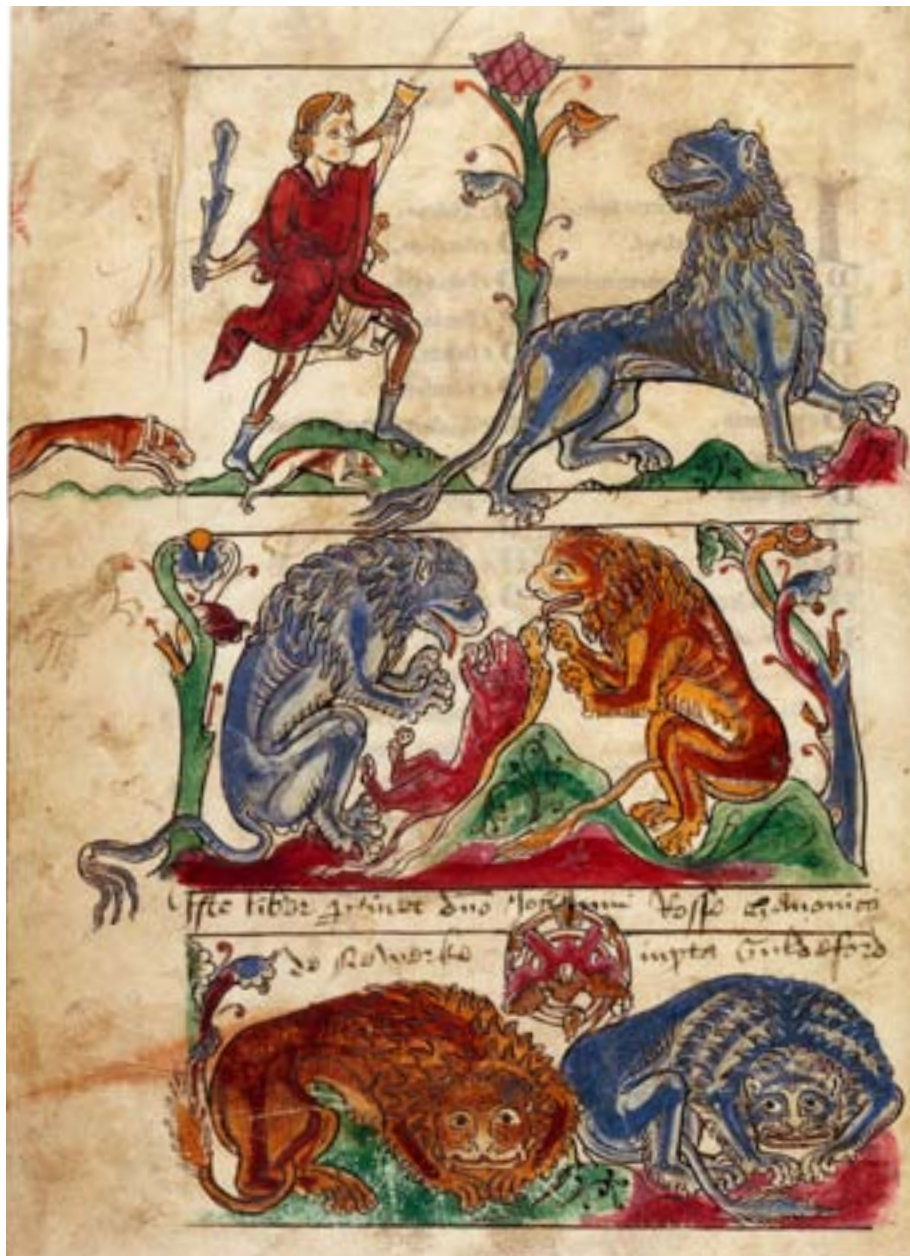 Iste liber ptinet dno Johanni Rosse chanonico
de Newerke iuxta Guldeford